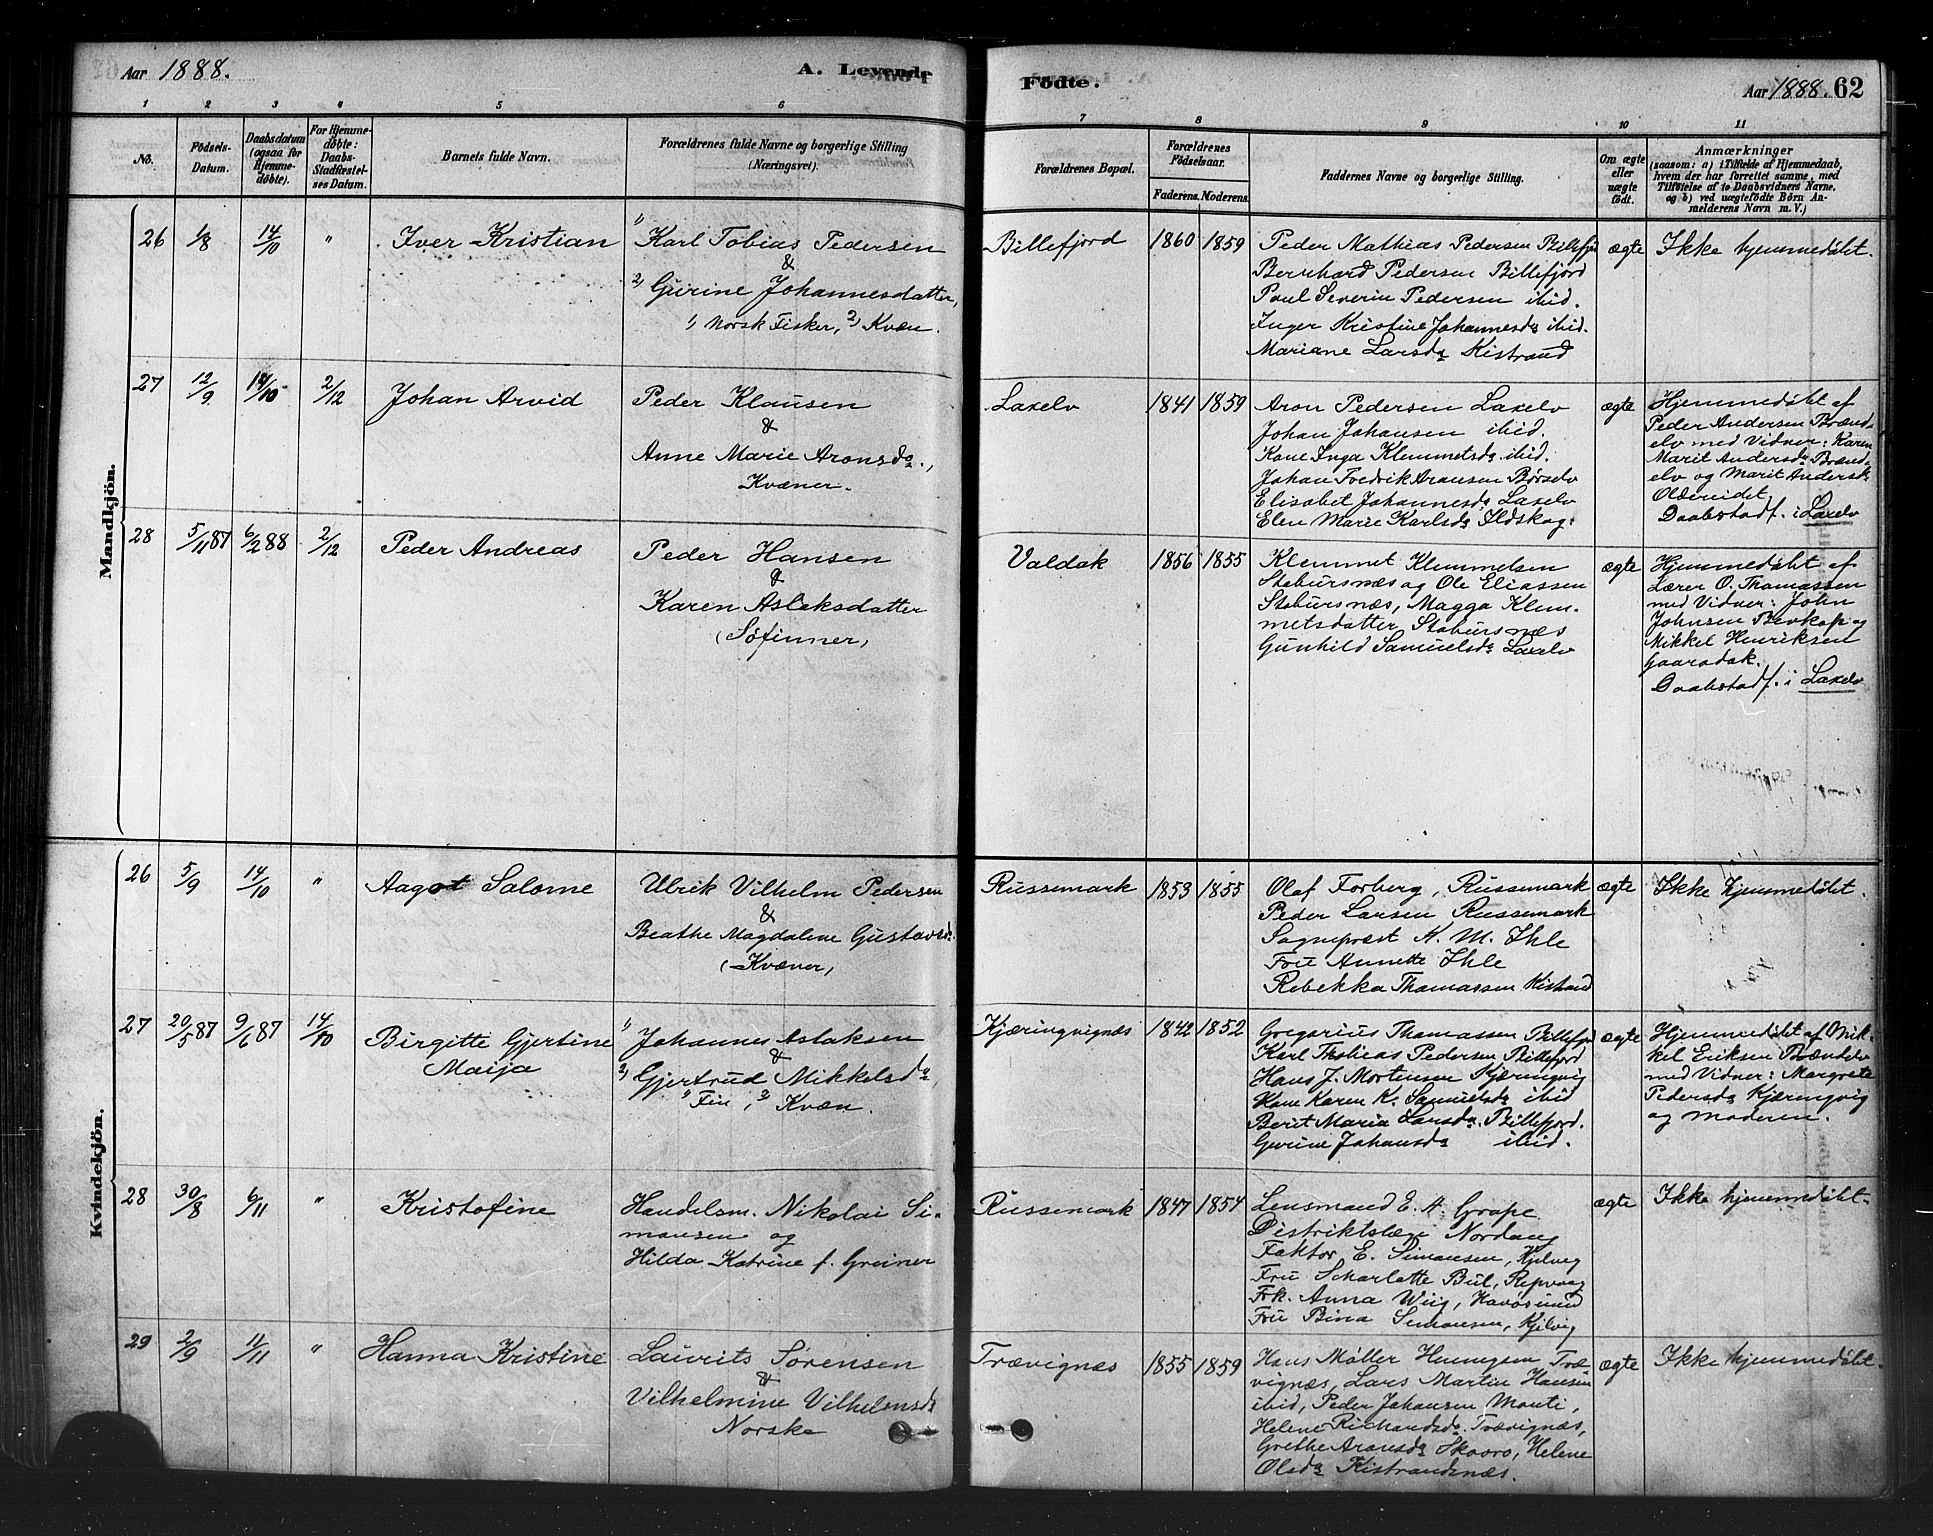 Aar 1888.
A. Levende
Födte.
Aar 1888. 62
1 2 3 4 5 6 7 8 9 10 11
No.
Födsels-
Datum.
Daabsdatum
(ogsaa for
Hjemme-
döbte).
For Hjemme-
döbte:
Daabs-
Stadfæstel-
ses Datum.
Barnets fulde Navn.
Forældrenes fulde Navne og borgerlige Stilling
(Næringsvei).
Forældrenes Bopæl.
Forældrenes
Födselsaar.
Faderens. Moderens.
Faddernes Navne og borgerlige Stilling.
Om ægte
eller
uægte
födt.
Anmærkninger
(saasom: a) i Tilfælde af Hjemmedaab,
hvem der har forrettet samme, med
Tilföielse af to Daabsvidners Navne,
og b) ved uægtefödte Börn An-
melderens Navn m. V.)
Mandkjön.
26 1/8 14/10 " Iver Kristian
1) Karl Tobias Pedersen
&
2) Gurine Johannesdatter,
1) Norsk Fisker, 2) Kvæn.
Billefjord 1860 1859
Peder Mathias Pedersen Billefjd
Bernhard Pedersen Billefjord
Poul Severin Pedersen ibid.
Inger Kristine Johannesda ibid.
Mariane Larsda Kistrand
ægte Ikke hjemmedøbt.
27 12/9 14/10 2/12 Johan Arvid
Peder Klausen
&
Anne Marie Aronsda.,
Kvæner.
Laxelv 1841 1859
Aron Pedersen Laxelv
Johan Johansen ibid.
Kone Inga Klemmetsda ibid.
Johan Fredrik Aronsen Børselv
Elisabet Johannesda Laxelv
Elen Marie Karlsda Ildskog.
ægte
Hjemmedøbt af
Peder Andersen Brænd-
elv med Vidner: Karen
Marit Andersda Brænd-
elv og Marit Andersda
Oldereidet.
Daabstadf. i Laxelv
28 5/11 87 6/2 88 2/12 Peder Andreas
Peder Hansen
&
Karen Aslaksdatter
(Søfinner)
Valdak 1856 1855
Klemmet Klemmetsen
Stabursnæs og Ole Eliassen
Stabursnæs, Magga Klem-
metsdatter Stabursnæs
Gunhild Samuelsda Laxelv
ægte
Hjemmedøbt af
Lærer O. Thomassen
med Vidner: John
Johnsen Bevkop og
Mikkel Henriksen
Gaaradak.
Daabstadf. i Laxelv
Kvindekjön.
26 5/9 14/10 " Aagot Salome
Ulrik Vilhelm Pedersen
&
Beathe Magdalene Gustavsd.
(Kvæner)
Russemark 1853 1855
Olaf Forberg, Russemark
Peder Larsen Russemark
Sognepræst N. M. Ihle
Fru Annette Ihle
Rebekka Thomassen Kistrand
ægte Ikke hjemmedøbt.
27 20/5 87 9/6 87 14/10 Birgitte Gjertine
Maija
1) Johannes Aslaksen
&
2) Gjertrud Mikkelsda
1) Fin, 2) Kvæn.
Kjæringvignæs 1842 1852
Gregorius Thomassen Billefjd
Karl Thobias Pedersen Billefjord
Hans J. Mortensen Kjæringvig
Kone Karen K. Samuelsda ibid
Berit Maria Larsda. Billefjord.
Gurine Johansda ibid.
ægte
Hjemmedøbt af Mik-
kel Eriksen Brændelv
med Vidner: Margrete
Pedersda Kjæringvig
og Moderen.
28 30/8 6/11 " Kristofine
Handelsm. Nikolai Si-
monsen og
Hilda Katrine f. Greiner
Russemark 1847 1854
Lensmand E. A. Grape
Distriktslæge Nordang
Faktor E. Simonsen, Kjelvig
Fru Scharlotte Bul, Repvaag
Frk. Anna Wiig, Havøsund
Fru Bina Simonsen, Kjelvig
ægte Ikke hjemmedøbt.
29 2/9 11/11 " Hanna Kristine
Laurits Sørensen
&
Vilhelmine Vilhelmsd.
Norske
Trævignæs 1855 1859
Hans Møller Henningsen Træ
vignæs, Lars Martin Hansen
ibid, Peder Johansen Monti,
Helene Richardsda. Trævignæs,
Grethe Aronsda Skoaro, Helene
Olsda Kistrandsnæs.
ægte Ikke hjemmedøbt.